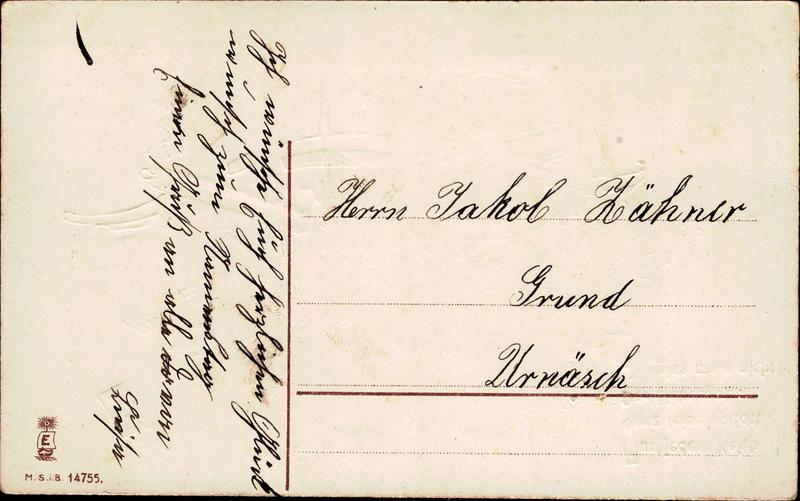 Ich wünsche Euch herzlichen Glück
wunsch zum Namenstag
Einen Gruß an alle
Herrn Jakob Zähner
Grund
Urnäsch
E
M.S.i.B. 14755.